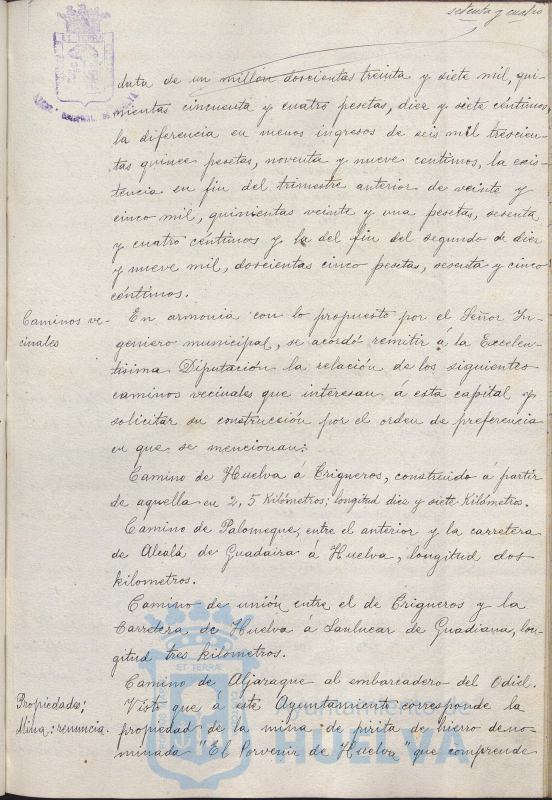 setenta y cuatro
data de un millón doscientas treinta y siete mil, qui-
nientas cincuenta y cuatro pesetas, diez y siete céntimos,
la diferencia en menos ingresos de seis mil trescien-
tas quince pesetas, noventa y nueve centimos, la exis-
tencia en fin del trimestre anterior de veinte y
cinco mil, quinientas veinte y una pesetas, sesenta
y cuatro céntimos y la del fin del segundo de diez
y nueve mil, doscientas cinco pesetas, sesenta y cinco
céntimos.
Caminos ve-
cinales
En armonia con lo propuesto por el Señor In-
geniero municipal, se acordó remitir á la Excelen-
tisima Diputación la relación de los siguientes
caminos vecinales que interesan á esta capital y
solicitar su construcción por el orden de preferencia
en que se mencionan:
Camino de Huelva á Trigueros, construido á partir
de aquella en 2,5 Kilómetros; longitud diez y siete Kilómetros.
Camino de Palomeque, entre el anterior y la carretera
de Alcalá de Guadaira á Huelva, longitud dos
kilometros.
Camino de unión entre el de Trigueros y la
Carretera de Huelva á Sanlucar de Guadiana, lon-
gitud tres kilómetros.
Camino de Aljaraque al embarcadero del Odiel.
Propiedades;
Mina: renuncia.
Visto que á este Ayuntamiento corresponde la
propiedad de la mina de pirita de hierro deno-
minada "El Porvenir de Huelva" que comprende
HUELVA